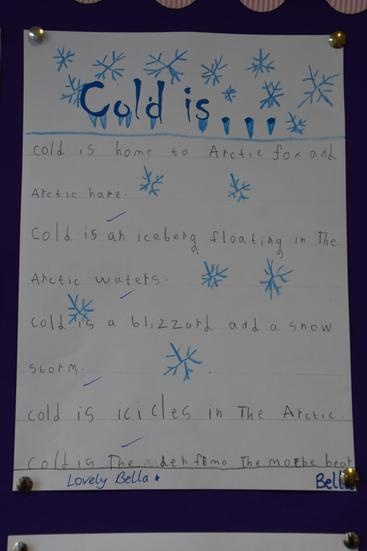 Cold is...
cold is home to Arctic fox and
Arctic hare.
Cold is an iceberg floating in The
Arctic waters.
cold is a blizzard and a snow
storm.
cold is icicles in The Arctic.
cold is The The
Lovely Bella
Bella